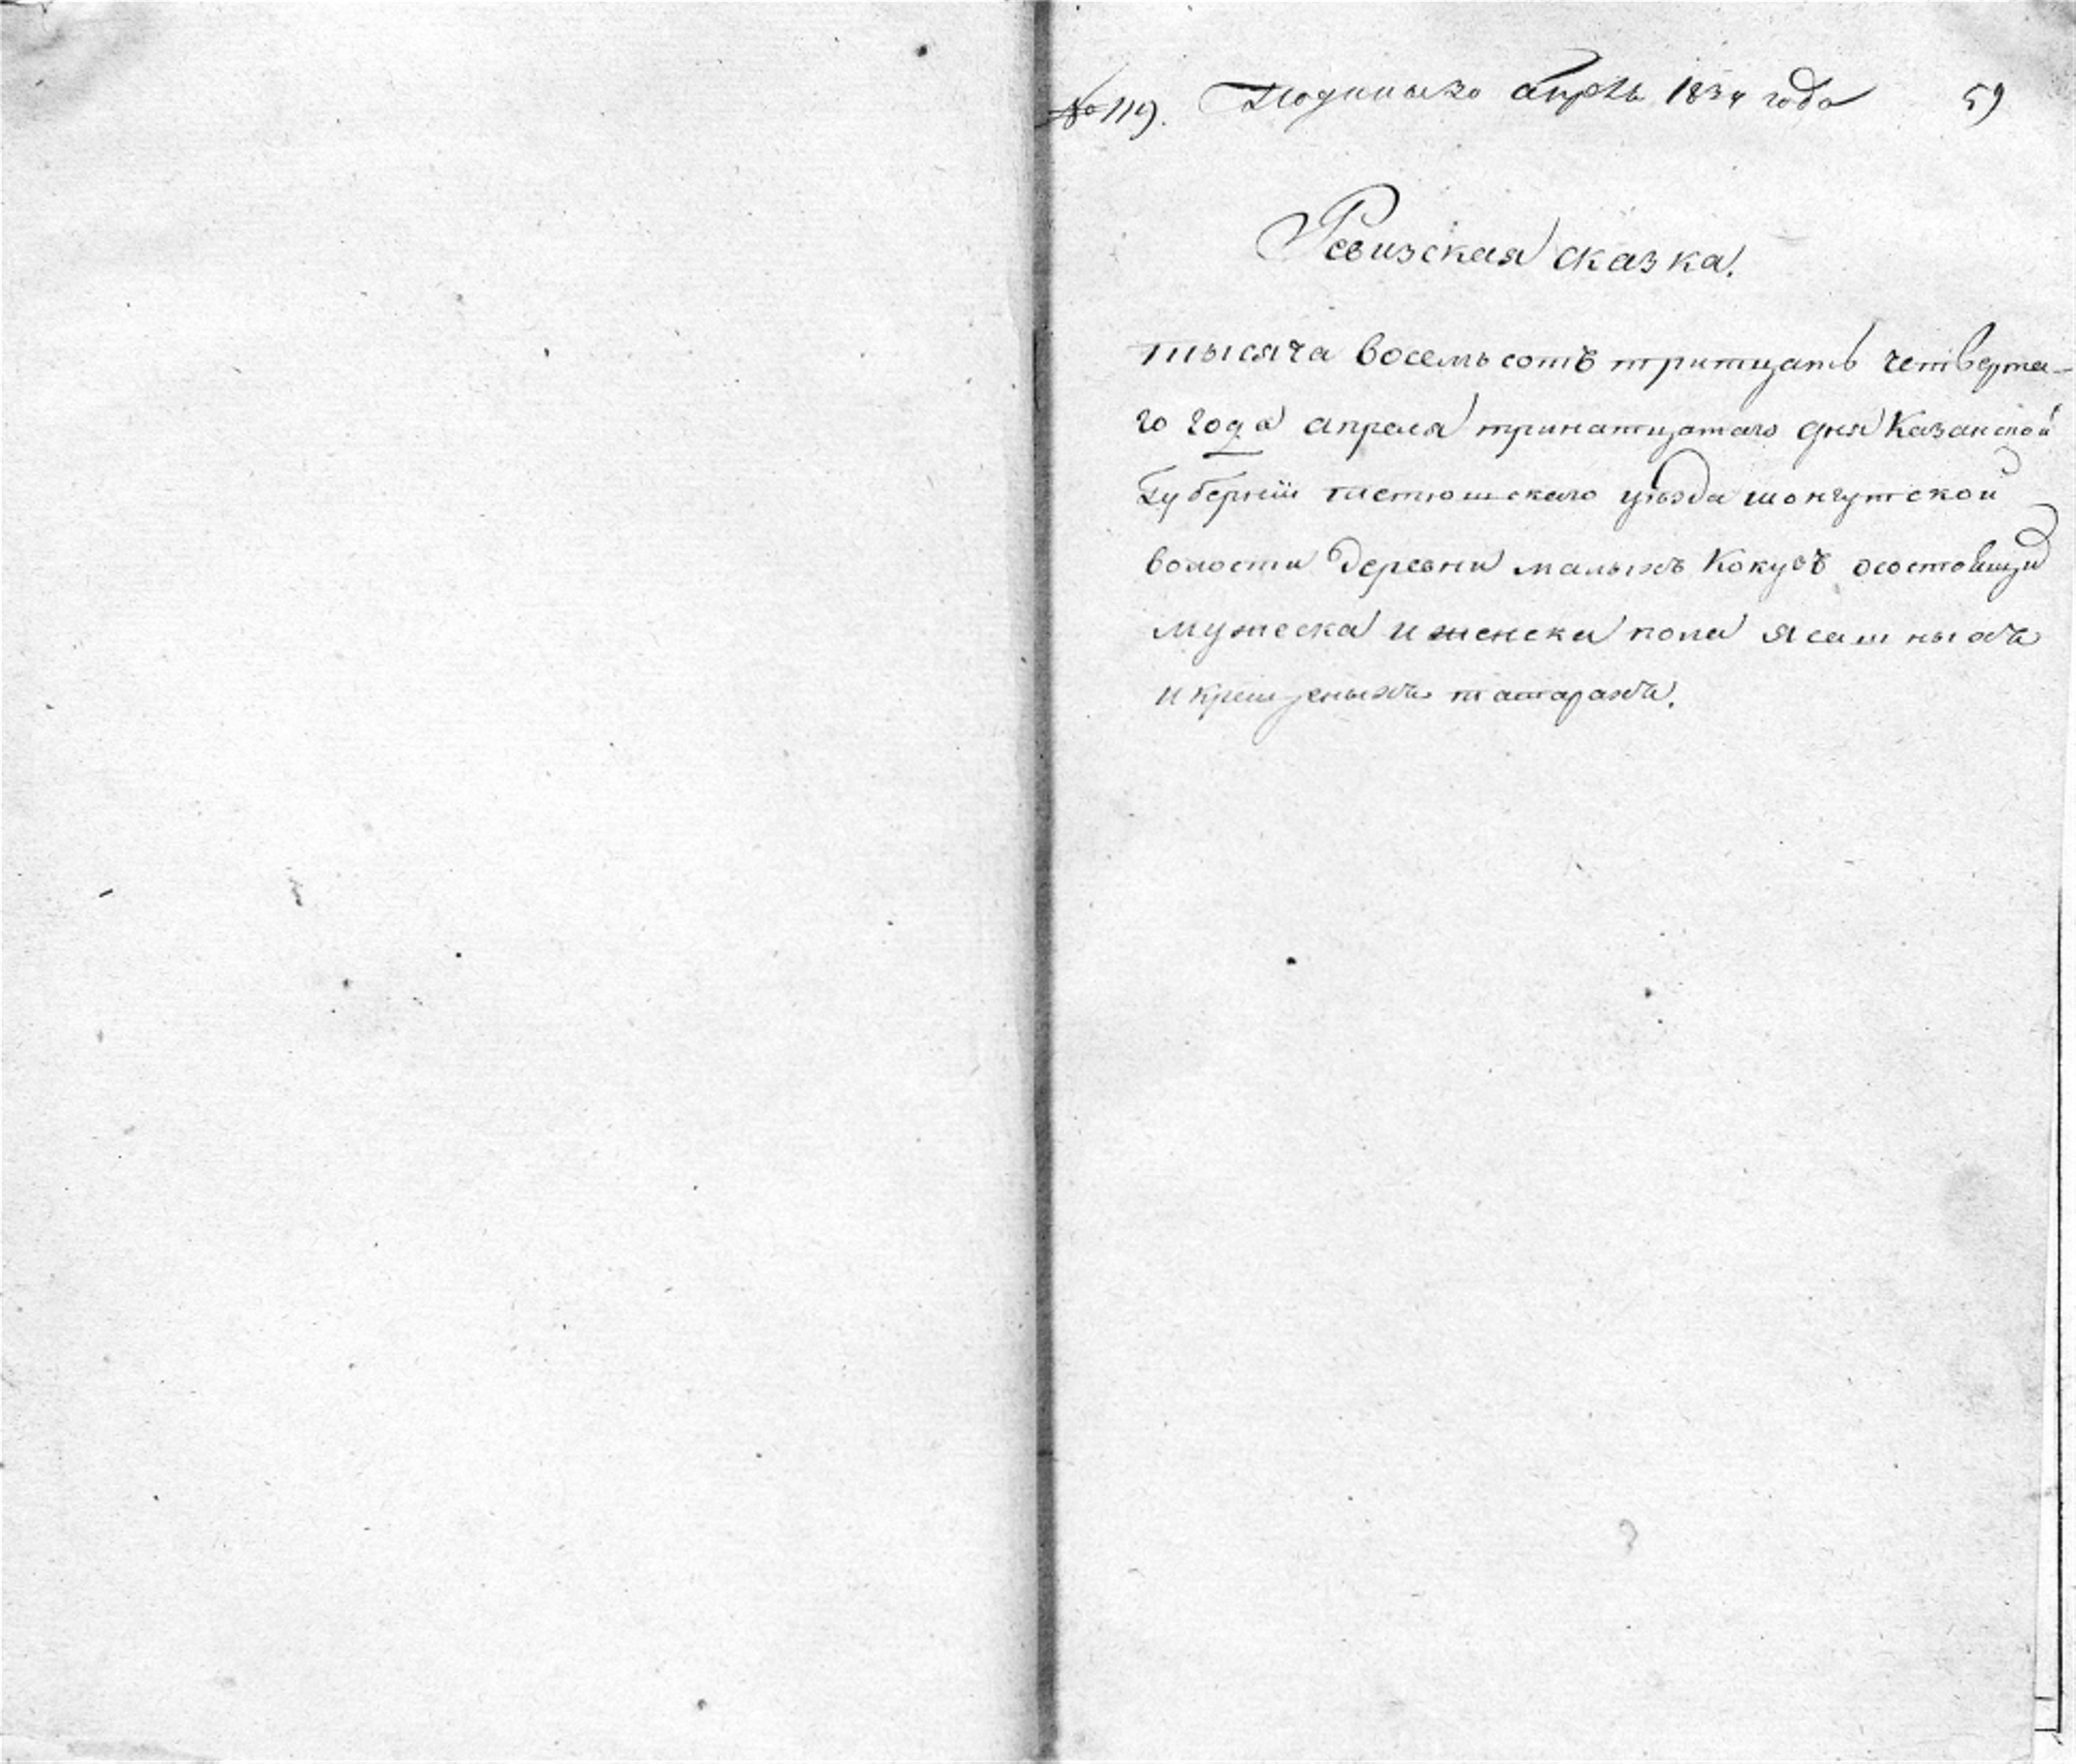 № 119. апрѣль 1834 года 59
Ревизская сказка.
тысяча восемьсотъ тритцать четверта-
го года апреля тринатцатаго дня Казанской
Губерніи тетюшскаго уѣзда шонгутской
волости Деревни малыхъ Кокузъ осостоящих
мужеска и женска пола ясашныхъ
и крещеныхъ татарахъ.